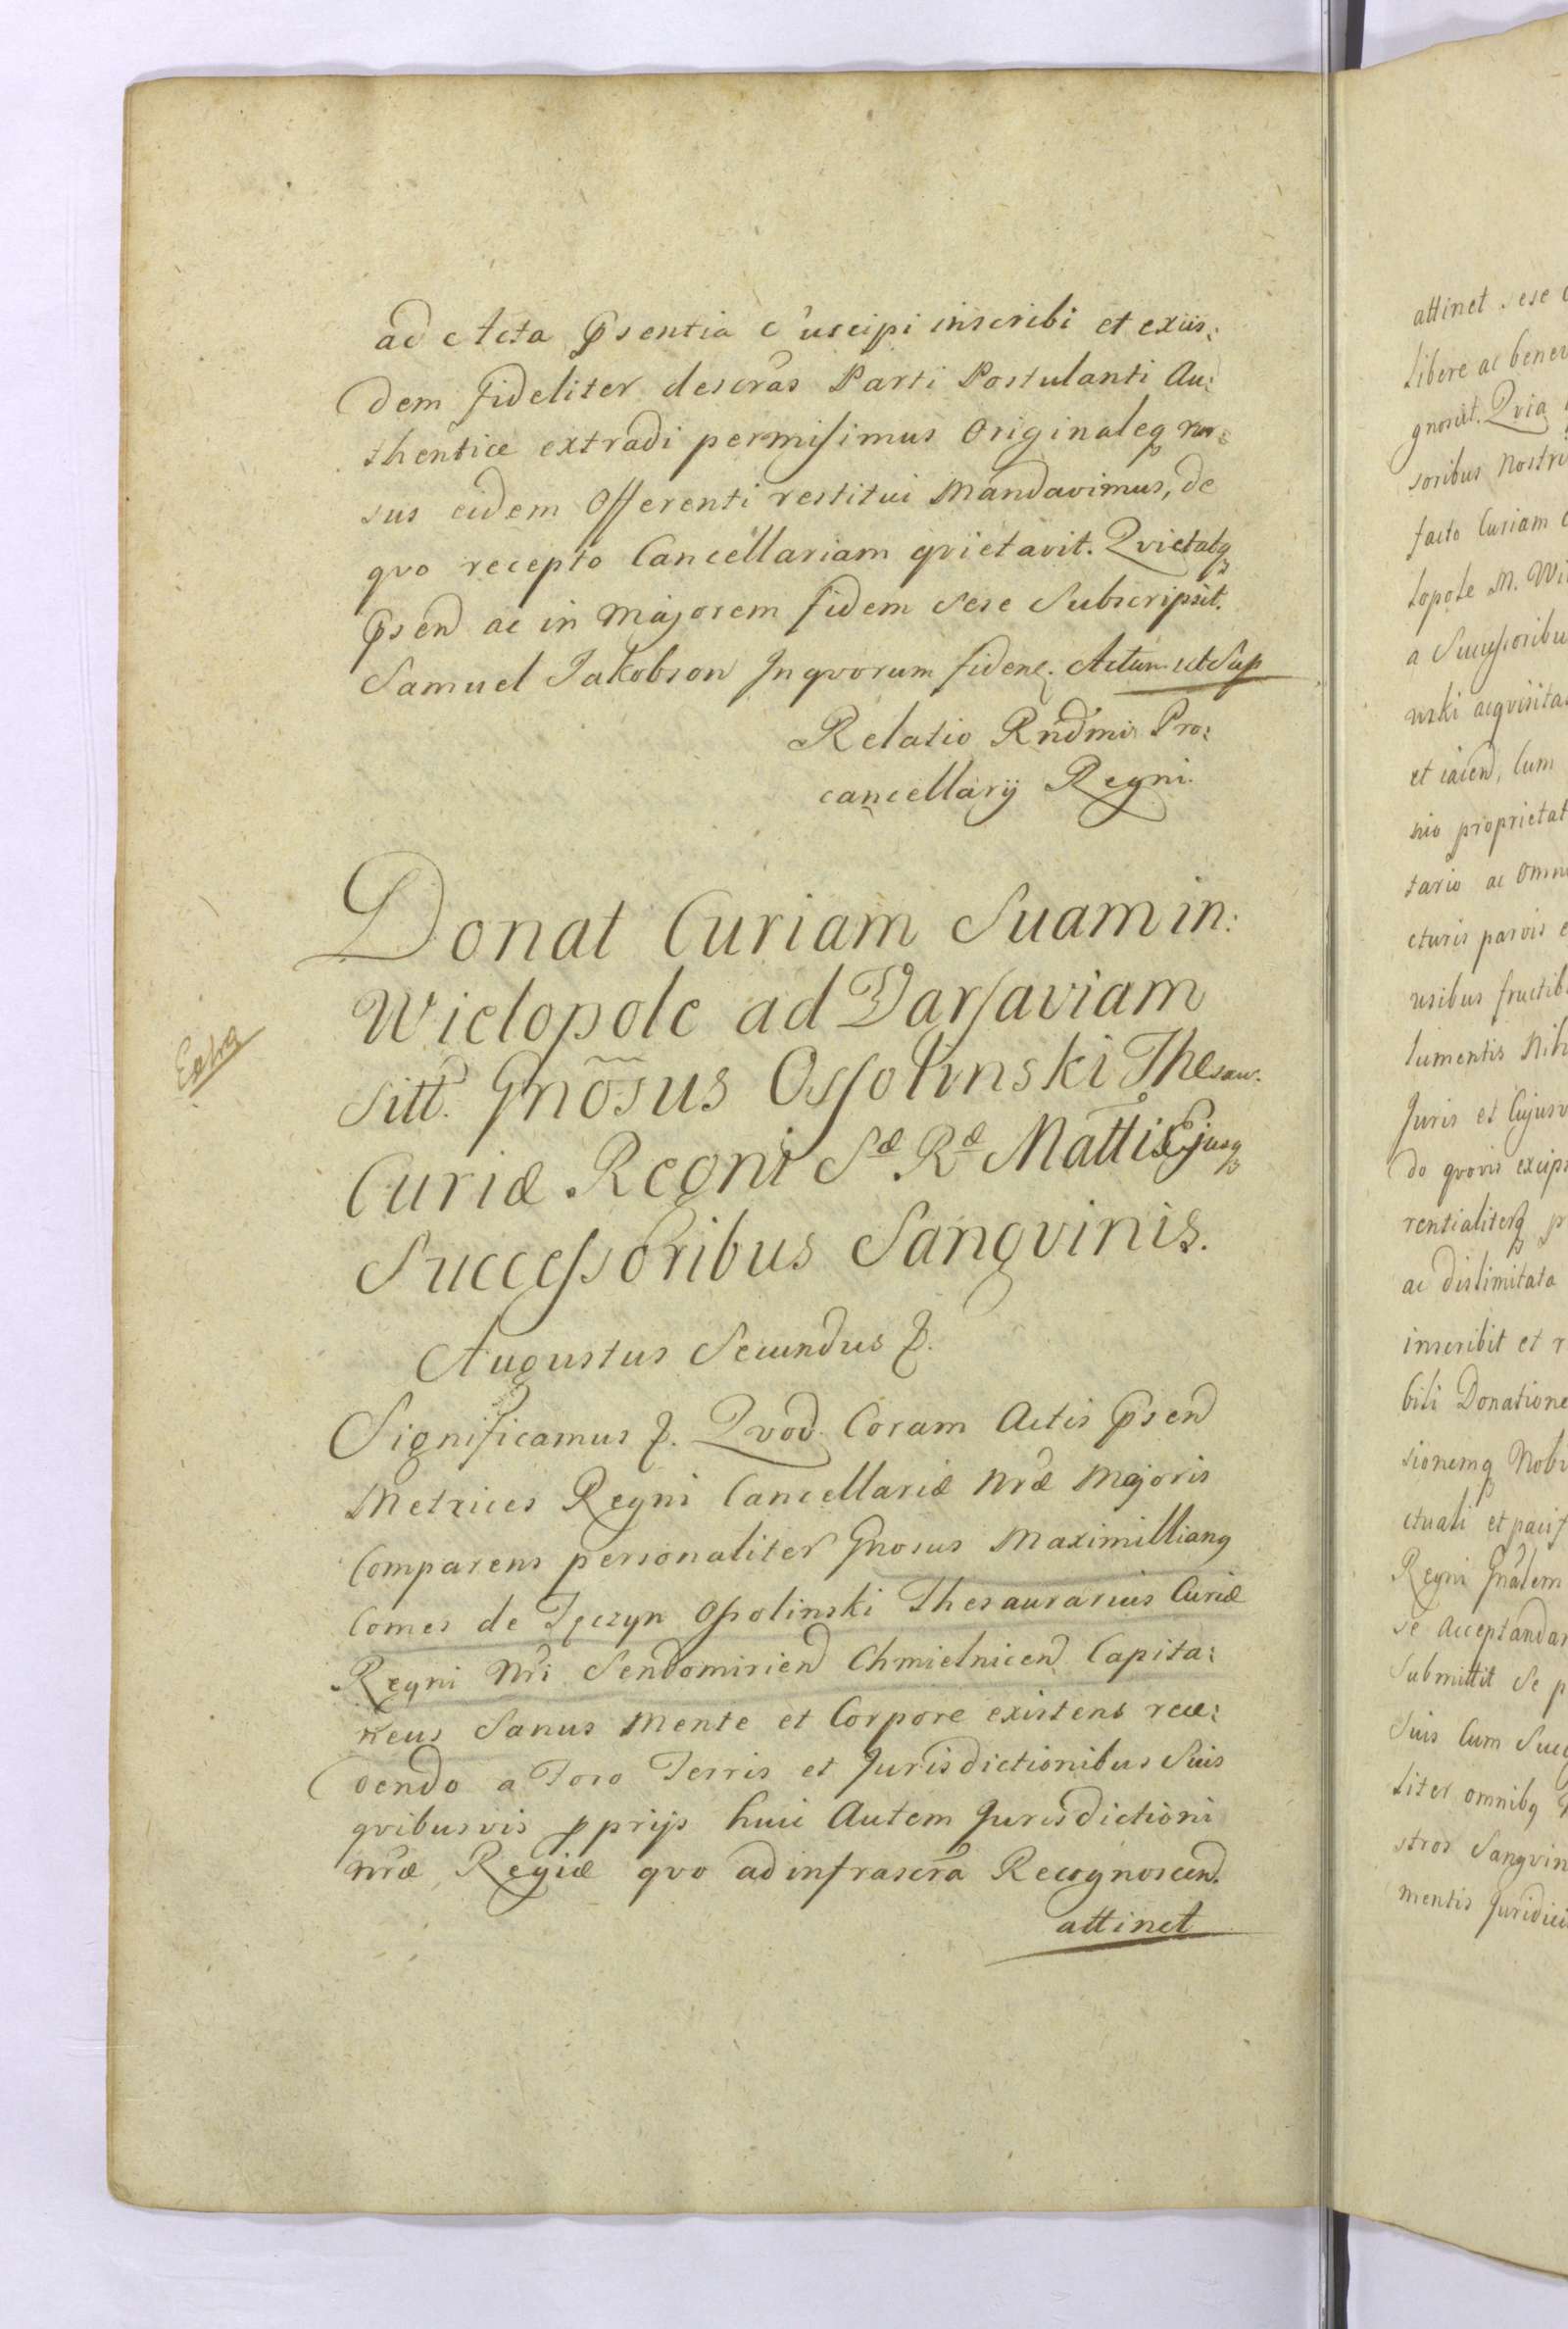 ad Acta Psentia Suscipi inscribi et exiis:
dem fideliter descras Parti Postulanti Au:
thentice extradi permisimus Originaleq rur:
sus eidem Offerenti restitui Mandavimus, de
qvo recepto Cancellariam qvietavit. Qvietatq
Psend ac in Majorem fidem Sese Subscripsit.
Samuel Jakobson In qvorum fidem. Actum ut Sup
Relatio Rndmi Pro:
cancellarij Regni.
Donat Curiam Suam in:
Wielopole ad Varsaviam
Sitt. Gnosus Ossolinski Thesau.
Curiæ Regni Sæ Ræ Mattis Ejusq
Successoribus Sangvinis.
Extra
Augustus Secundus
Significamus Qvod Coram Actis Psend
Metrices Regni Cancellariæ Nræ Majoris
Comparens personaliter Gnosus Maximillianq
Comes de Tęczyn Ossolinski Thesaurarius Curiæ
Regni Nri Sendomiriend Chmielnicend Capita:
neus Sanus Mente et Corpore existens rece:
dendo a Foro Terris et Jurisdictionibus Suis
qvibusvis pprijs huic Autem Jurisdictioni
Nræ Regiæ qvo ad infrascra Recognoscend.
attinet
attinet sese
Libere ac benev
gnovit. Qvia
soribus Nostri
facto Curiam
lopole M. Wi
a Successoribu
wski acqvisita
et iacend, Cum
nio proprietat
tario ac Omni
cturis parvis e
usibus fructib
lumentis Nih
Juris et Cujusv
do qvovis excip
rentialiterq p
ac dislimitata
inscribit et r
bili Donatione
sionemq Nobi
ctuali et pacif
Regni Gnalem
se Acceptandam
Submittit Se p
Suis Cum Succ
liter omnibq
stros Sangvin
mentis Juridici